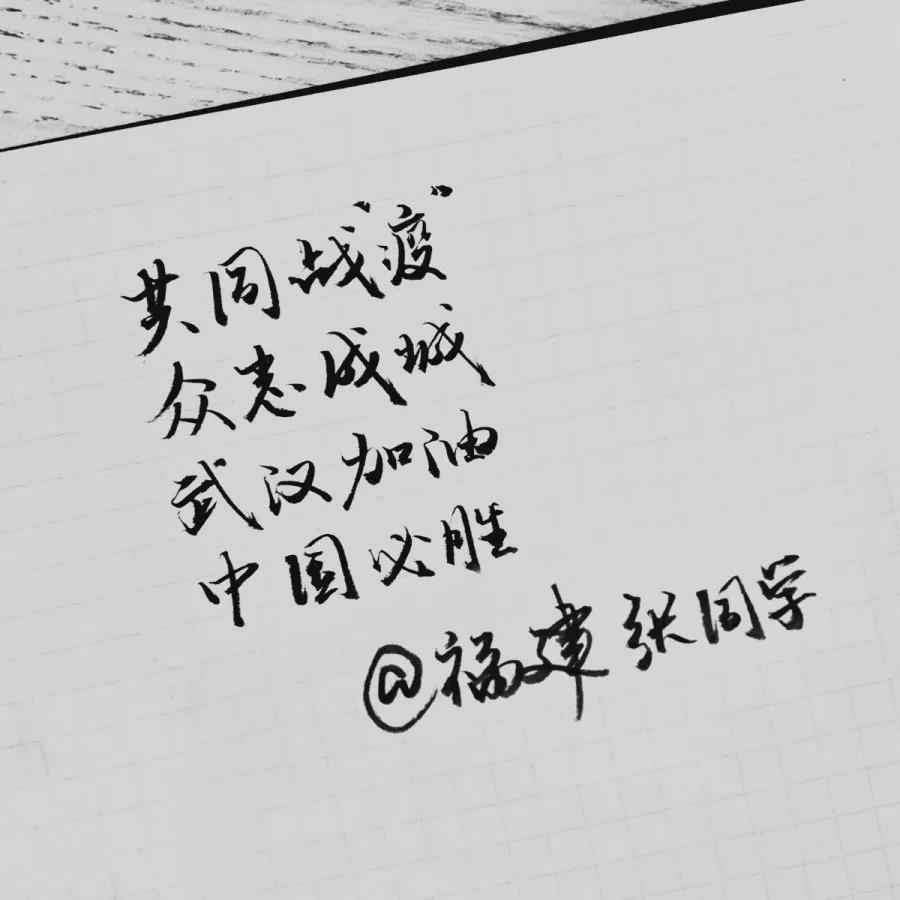 共同战“疫”
众志成城
武汉加油
中国必胜
@福建张同学